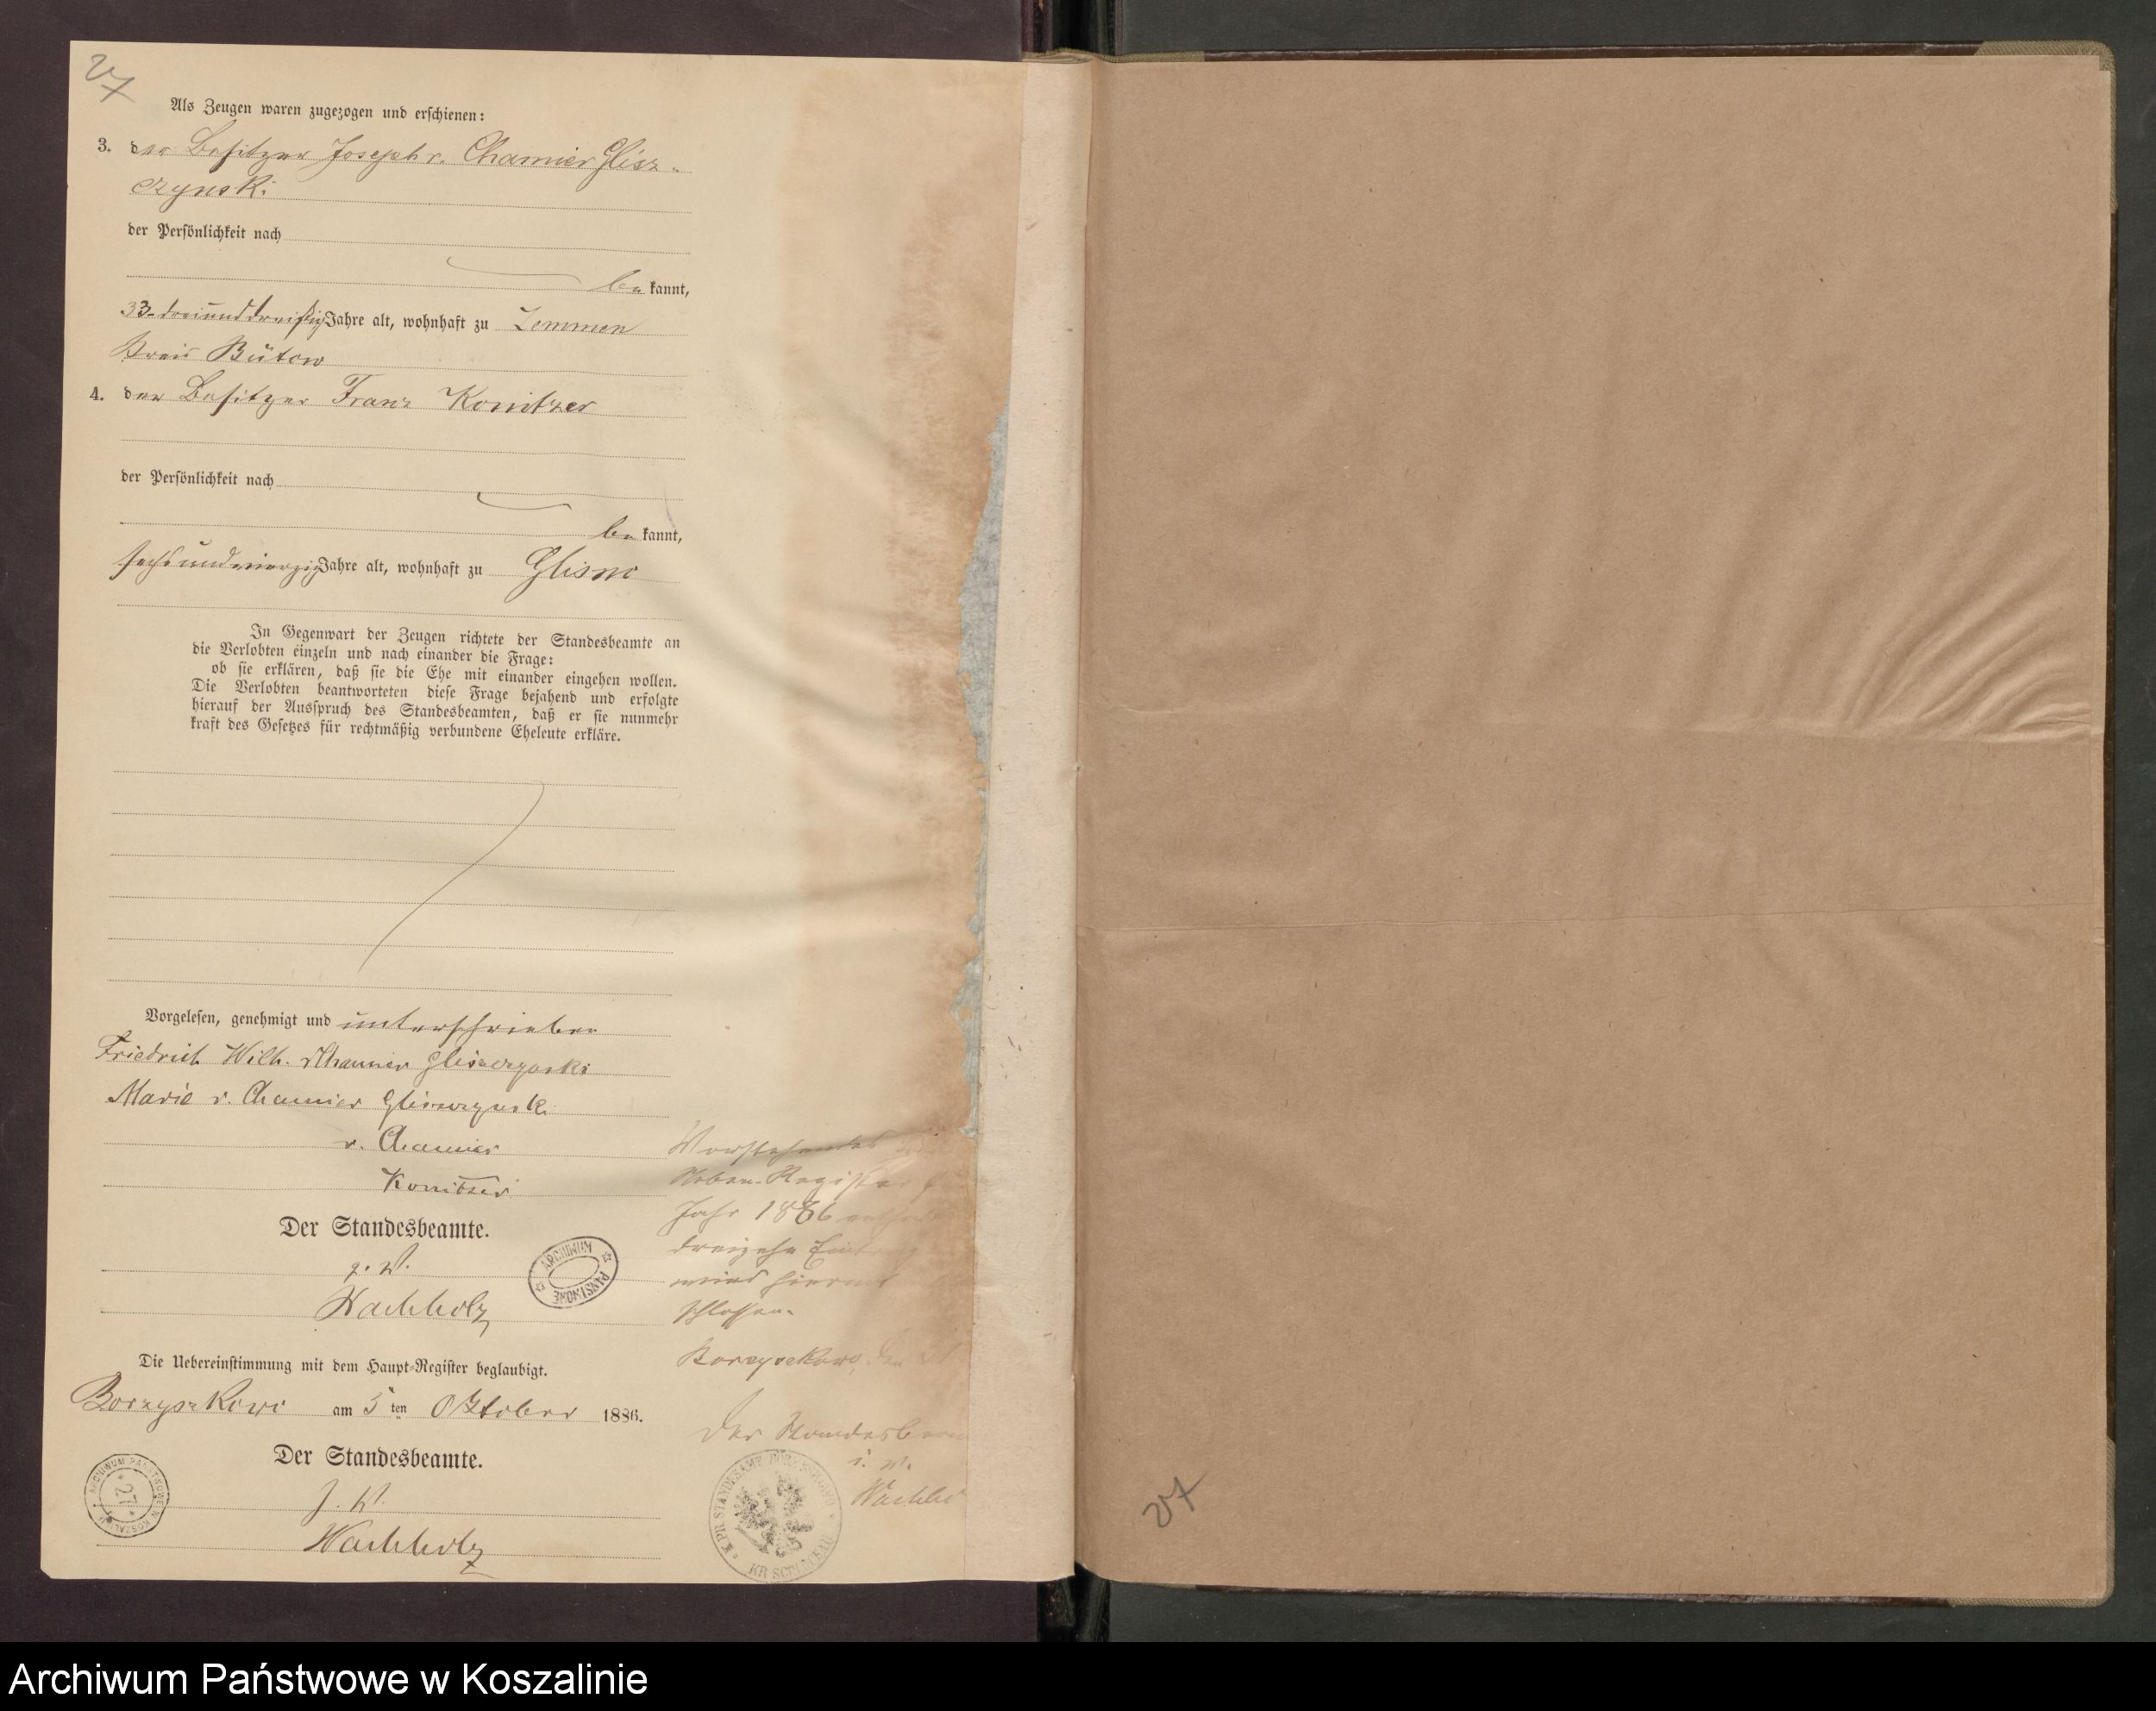 27
Als Zeugen waren zugezogen und erschienen:
3. der Besitzer Joseph v. Chamier Glisz-
czynski
der Persönlichkeit nach
be kannt,
33- dreiunddreißig Jahre alt, wohnhaft zu Zemmen
Kreis Bütow
4. der Besitzer Franz Konitzer
der Persönlichkeit nach
be kannt,
sechsundvierzig Jahre alt, wohnhaft zu Glisno
In Gegenwart der Zeugen richtete der Standesbeamte an
die Verlobten einzeln und nach einander die Frage:
ob sie erklären, daß sie die Ehe mit einander eingehen wollen.
Die Verlobten beantworteten diese Frage bejahend und erfolgte
hierauf der Ausspruch des Standesbeamten, daß er sie nunmehr
kraft des Gesetzes für rechtmäßig verbundene Eheleute erkläre.
Vorgelesen, genehmigt und unterschrieben
Friedrich Wilh. v Chamier Gliszczynski
Marie v. Chamier Gliszczynski
v. Chamier
Konitzer
Der Standesbeamte.
Wachholz
ARCHIWUM PAŃSTWOWE
Die Uebereinstimmung mit dem Haupt-Register beglaubigt.
Borzyszkowo am 5 ten Oktober 1886.
Der Standesbeamte.
J. V.
Wachholz
ARCHIWUM PAŃSTWOWE W KOSZALINIE
27
Vorstehendes
Neben-Register
Jahr 1886
dreizehn
wird hiermit
schlossen.
Borzyszkowo, den
Der Standesbeam
i. V.
Wachho
K. PR. STANDESAMT BORZYSZKOWO
KR SCHLOCHAU
27
Archiwum Państwowe w Koszalinie